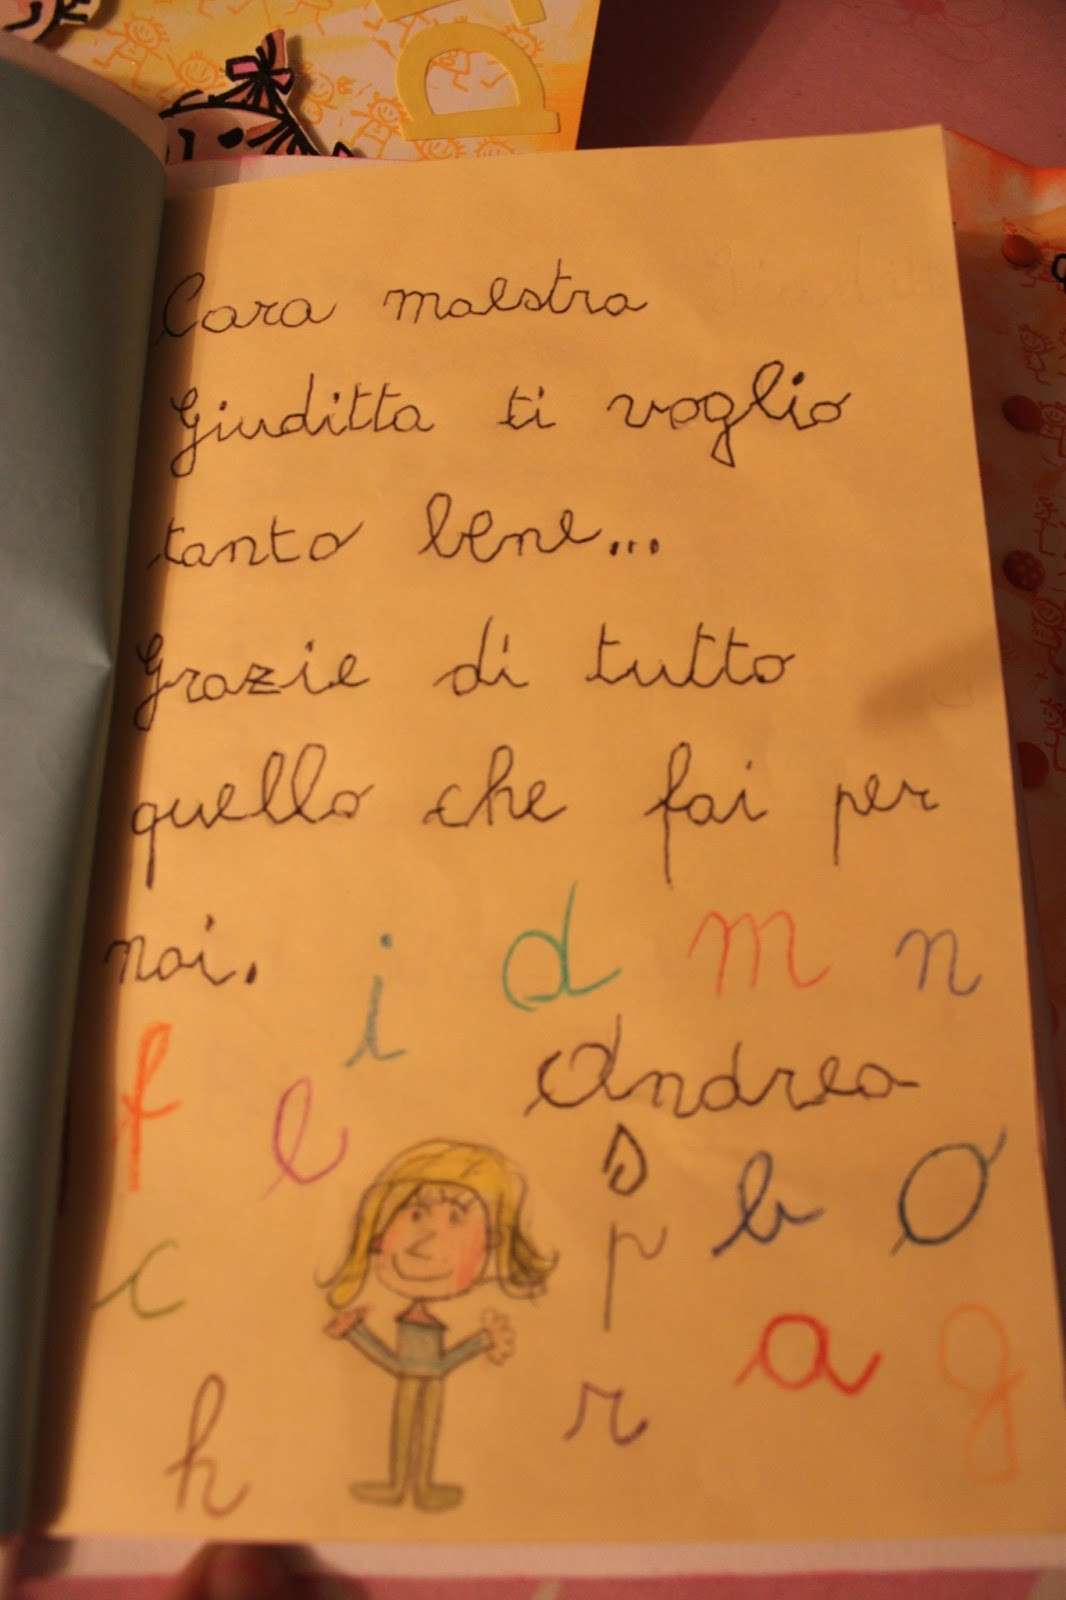 D
Cara maestra
Giuditta ti voglio
tanto bene...
Grazie di tutto
quello che fai per
noi.
i d m n
f l Andrea
s b O
c p
a g
h r